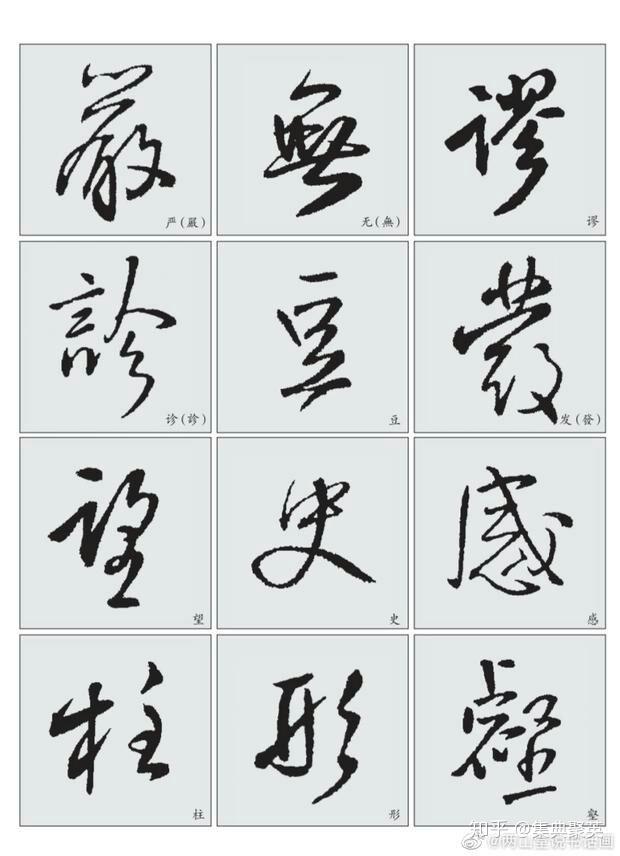 嚴 無 谬
严(嚴) 无(無) 谬
診 豆 發
诊(診) 豆 发(發)
望 史 感
望 史 感
柱 形 壑
柱 形 壑
知乎 @集典聚英
@两山堂说书话画